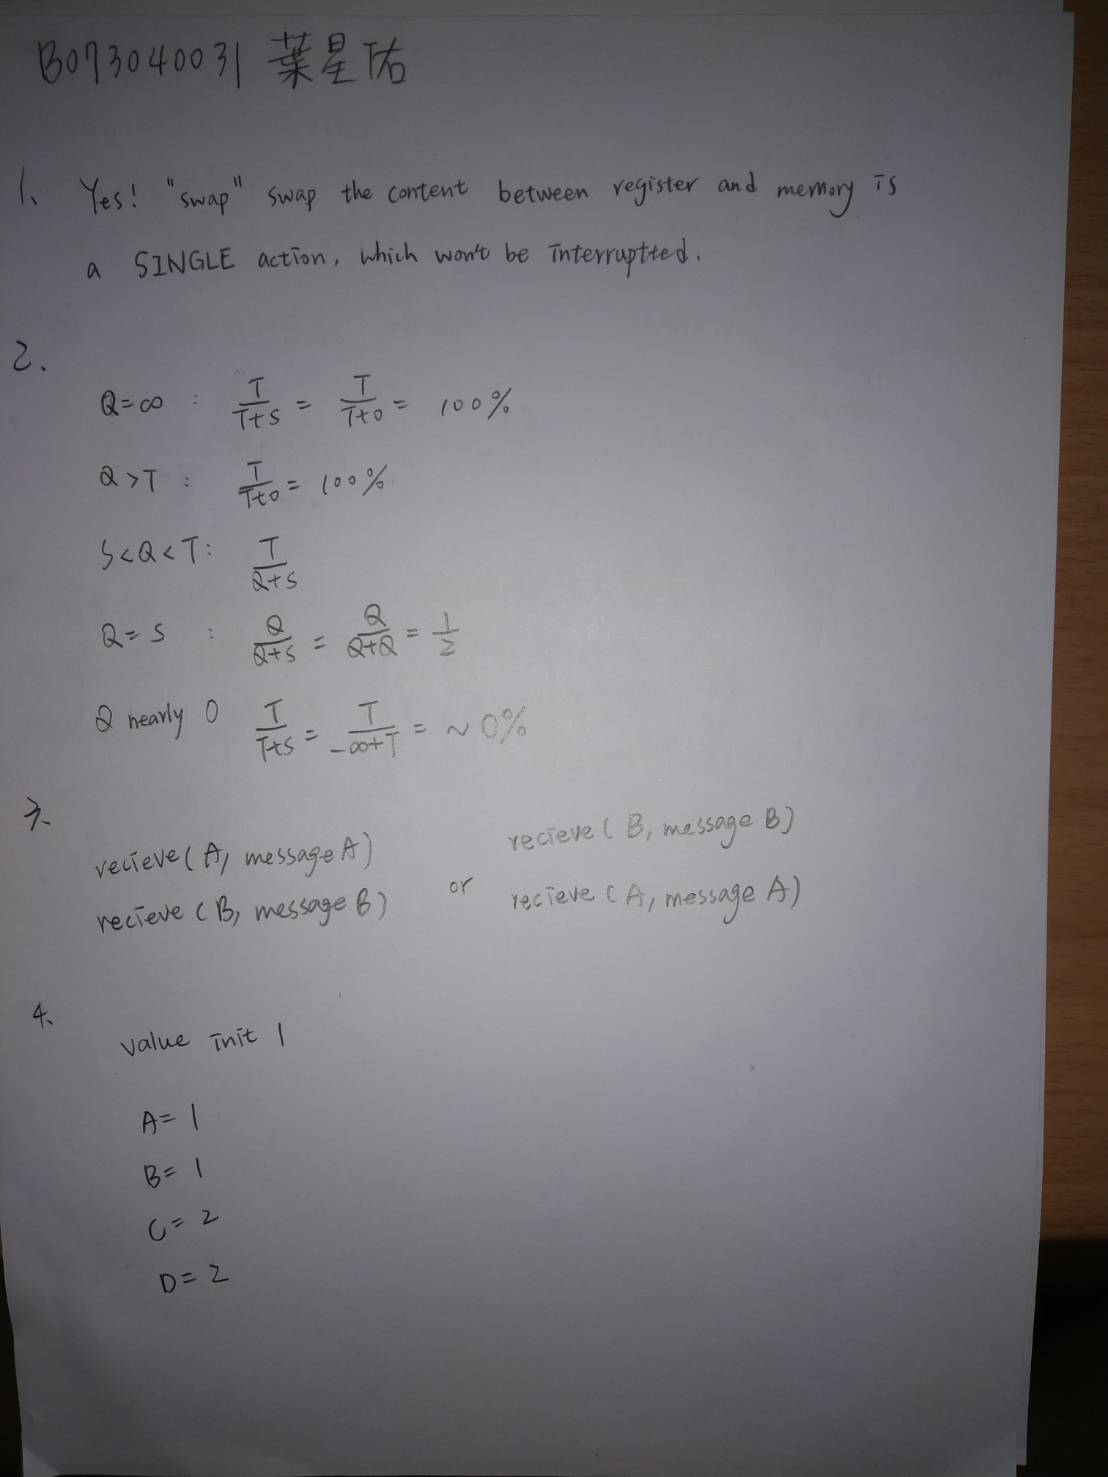 B073040031 葉星佑
1、 Yes! "swap" swap the content between register and memory is
a SINGLE action, which won't be interruptted.
2、
Q=∞ : T/(T+S) = T/(T+0) = 100%
Q>T : T/(T+0) = 100%
S<Q<T: T/(Q+S)
Q=S : Q/(Q+S) = Q/(Q+Q) = 1/2
Q nearly 0 T/(T+S) = T/(-∞+T) = ~0%
3、
recieve(A, message A)
recieve(B, message B)
or
recieve(B, message B)
recieve(A, message A)
4、
value init 1
A=1
B=1
C=2
D=2